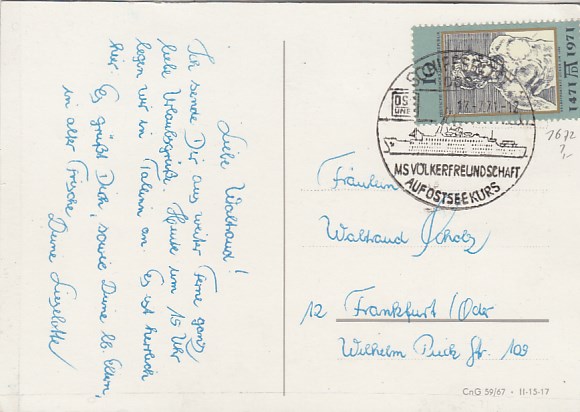 Liebe Waltraud!
Ich sende Dir aus weiter Ferne ganz
liebe Urlaubsgrüße. Heute um 15 Uhr
legen wir in Tallinn an. Es ist herrlich
hier. Es grüßt Dich, sowie Deine lb. Eltern,
in alter Frische
Deine Lieselotte
1471 1971
10
13.-7.71-12
MS VÖLKERFREUNDSCHAFT
AUF OSTSEEKURS
1672
Fräulein
Waltraud Scholz
12 Frankfurt/Oder
Wilhelm Pieck Str. 109
CnG 59/67 • II-15-17